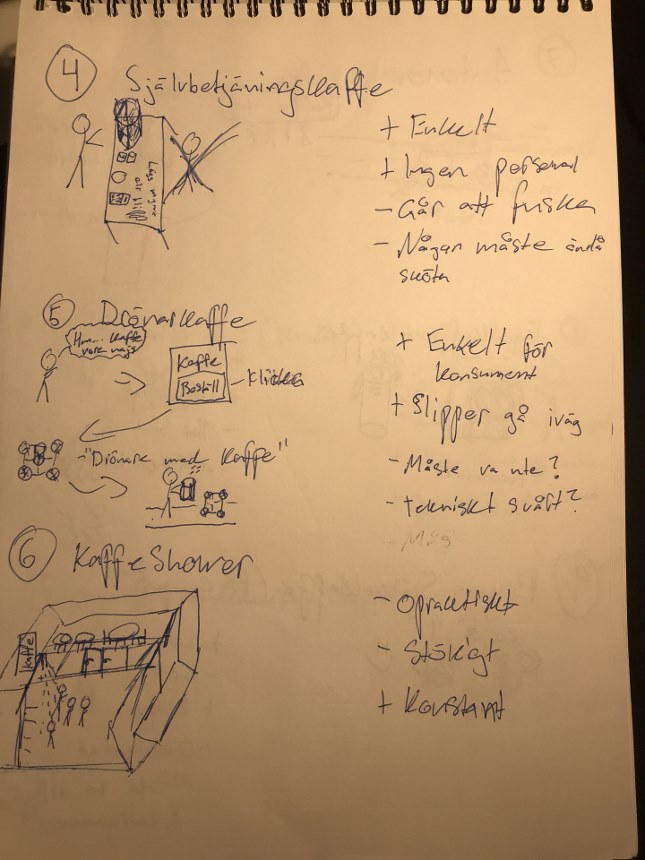 4 Självbetjäningskaffe
+ Enkelt
+ Ingen personal
- Går att fuska
- Någon måste ändå
sköta
Lägg pengar
5 Drönarkaffe
Hm... kaffe
vore najs
Kaffe
Beställ
- Klicka
- "Drönare med kaffe"
+ Enkelt för
konsument
+ Slipper gå iväg
- Måste va ute?
- Tekniskt svårt?
6 KaffeShower
Kaffe
- Opraktiskt
- Stökigt
+ Konstant